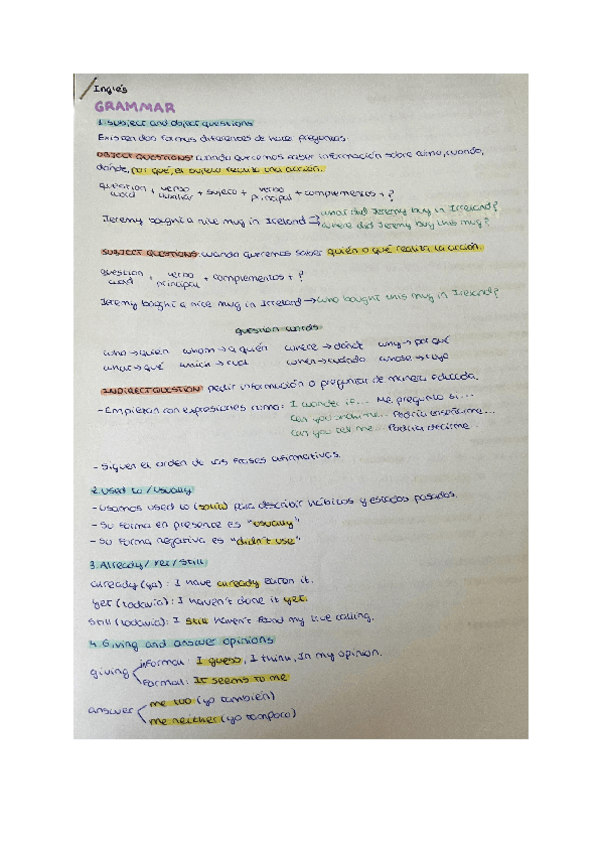 Inglés
GRAMMAR
1. Subject and object questions
Existen dos formas diferentes de hacer preguntas.
OBJECT QUESTIONS: cuando queremos saber información sobre cómo, cuándo,
dónde, por qué, el sujeto realiza una acción.
question word + verbo auxiliar + sujeto + verbo principal + complementos + ?
Jeremy bought a nice mug in Ireland → what did Jeremy buy in Ireland?
where did Jeremy buy this mug?
SUBJECT QUESTIONS: cuando queremos saber quién o qué realiza la acción.
question word + verbo principal + complementos + ?
Jeremy boght a nice mug in Irreland → who bought this mug in Ireland?
question words
who → quien whom → a quién where → dónde why → por qué
what → qué which → cuál when → cuándo whose →
INDIRECT QUESTION: pedir información o preguntar de manera educada.
- Empiezan con expresiones como: I wonder if... Me pregunto si...
Can you show me... Podría enseñarme...
Can you tell me... Podría decirme...
- Siguen el orden de las frases afirmativas.
2. Used to / usually
- Usamos used to (solía) para describir hábitos y estados pasados.
- Su forma en presente es "usually"
- Su forma negativa es "didn't use"
3. Already / Yet / Still
already (ya): I have already eaten it.
yet (todavía): I haven't done it yet.
still (todavía): I still haven't found my calling.
4. Giving and answer opinions
giving informal: I guess, I think, In my opinion.
formal: It seems to me
answer me too (yo también)
me neither (yo tampoco)